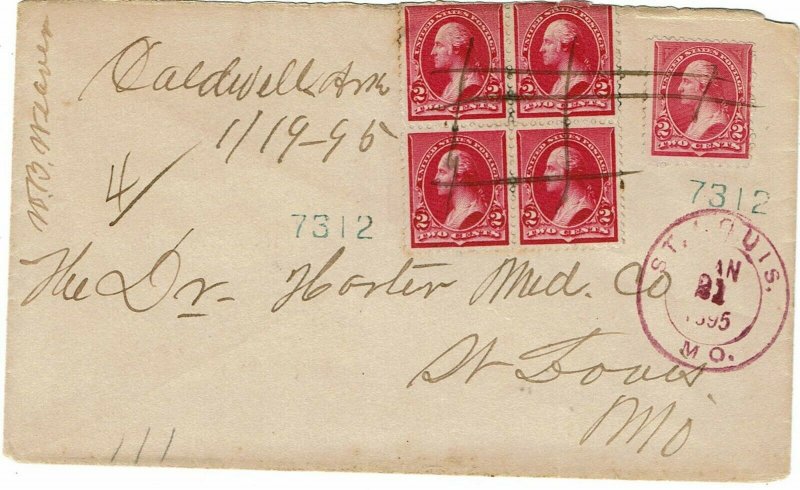 W.B. Weaver
Caldwell Ark
1/19-95
4/
UNITED STATES POSTAGE
2 2
TWO CENTS
UNITED STATES POSTAGE
2 2
TWO CENTS
UNITED STATES POSTAGE
2 2
TWO CENTS
UNITED STATES POSTAGE
2 2
TWO CENTS
UNITED STATES POSTAGE
2 2
TWO CENTS
7312
7312
ST. LOUIS.
21
1895
MO.
The Dr Harter Med. Co
St Louis
Mo
111